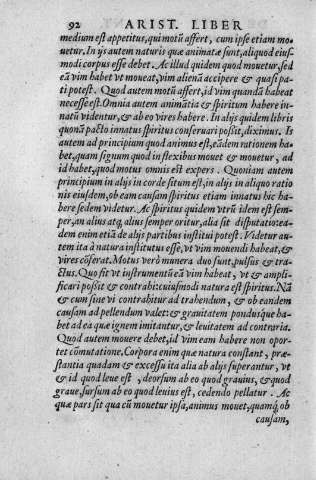 92 ARIST. LIBER
medium est appetitus, qui motũ affert, cum ipse etiam mo-
uetur. In ijs autem naturis quæ animatæ sunt, aliquod eius-
modi corpus esse debet. Ac illud quidem quod mouetur, sed
eã vim habet vt moueat, vim alienã accipere & quasi pa-
ti potest. Quod autem motũ affert, id vim quandã habeat
necesse est. Omnia autem animãtia & spiritum habere in-
natũ videntur, & ab eo vires habere. In alijs quidem libris
quonã pacto innatus spiritus conseruari possit, diximus. Is
autem ad principium quod animus est, eãdem rationem ha-
bet, quam signum quod in flexibus mouet & mouetur, ad
id habet, quod motus omnis est expers. Quoniam autem
principium in alijs in corde situm est, in alijs in aliquo ratio
nis eiusdem, ob eam causam spiritus etiam innatus hic ha-
bere sedem videtur. Ac spiritus quidem vtrũ idem est sem-
per, an alius atq; alius semper oritur, alia sit disputatio: ea-
dem enim etiã de alijs partibus institui potest. Videtur au-
tem ita à natura institutus esse, vt vim mouendi habeat, &
vires cõferat. Motus verò munera duo sunt, pulsus & tra-
ctus. Quo fit vt instrumentũ eã vim habeat, vt & ampli-
ficari possit & contrahi: cuiusmodi natura est spiritus. Nã
& cum sine vi contrahitur ad trahendum, & ob eandem
causam ad pellendum valet: & grauitatem pondusque ha-
bet ad ea quæ ignem imitantur, & leuitatem ad contraria.
Quod autem mouere debet, id vim eam habere non opor-
tet cõmutatione. Corpora enim quæ natura constant, præ-
stantia quadam & excessu ita alia ab alijs superantur, vt
& id quod leue est, deorsum ab eo quod grauius, & quod
graue, sursum ab eo quod leuius est, cedendo pellatur. Ac
quæ pars sit qua cũ mouetur ipsa, animus mouet, quamq; ob
causam,